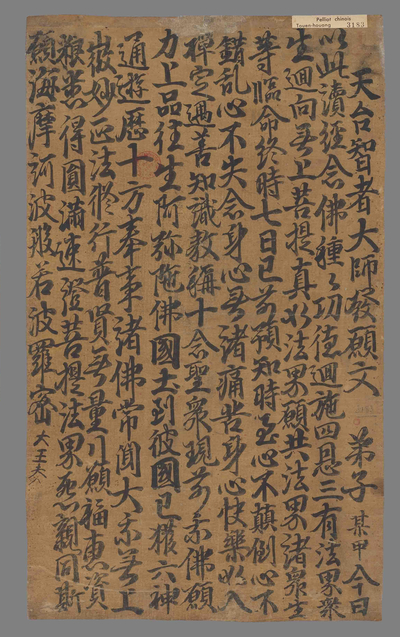 Pelliot chinois
Touen-houang 3183
天台智者大師發願文 弟子某甲今日
以此讀經念佛種〻功德迴施四恩三有法界衆
生迴向无上菩提真如法界願共法界諸衆生
等臨命終時七日已前預知時至心不顛倒心不
錯乱心不失念身心无諸痛苦身心快樂如入
禪定遇善知識教稱十念聖衆現前承佛願
力上品往生阿弥陁佛國土到彼國已獲六神
通遊歷十方奉事諸佛常聞大乘无上
微妙正法修行普賢无量行願福惠資
粮悉得圓滿速證菩提法界怨親同斯
願海摩訶波般若波羅蜜